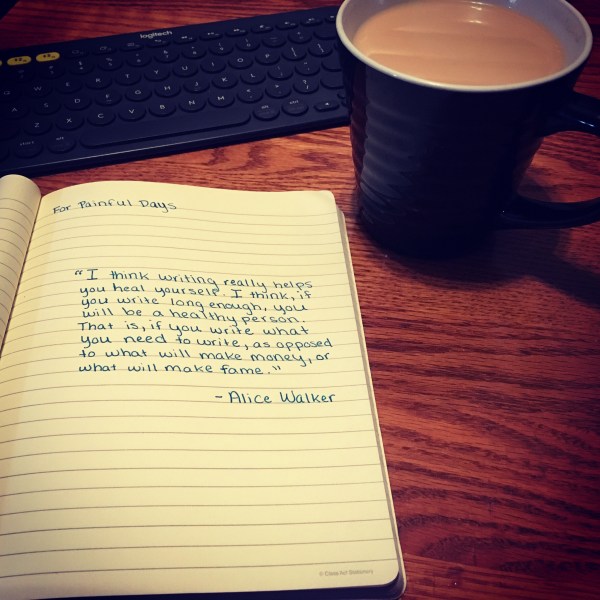 logitech
For Painful Days
"I think writing really helps
you heal yourself. I think, if
you write long enough, you
will be a healthy person.
That is, if you write what
you need to write, as opposed
to what will make money, or
what will make fame."
- Alice Walker